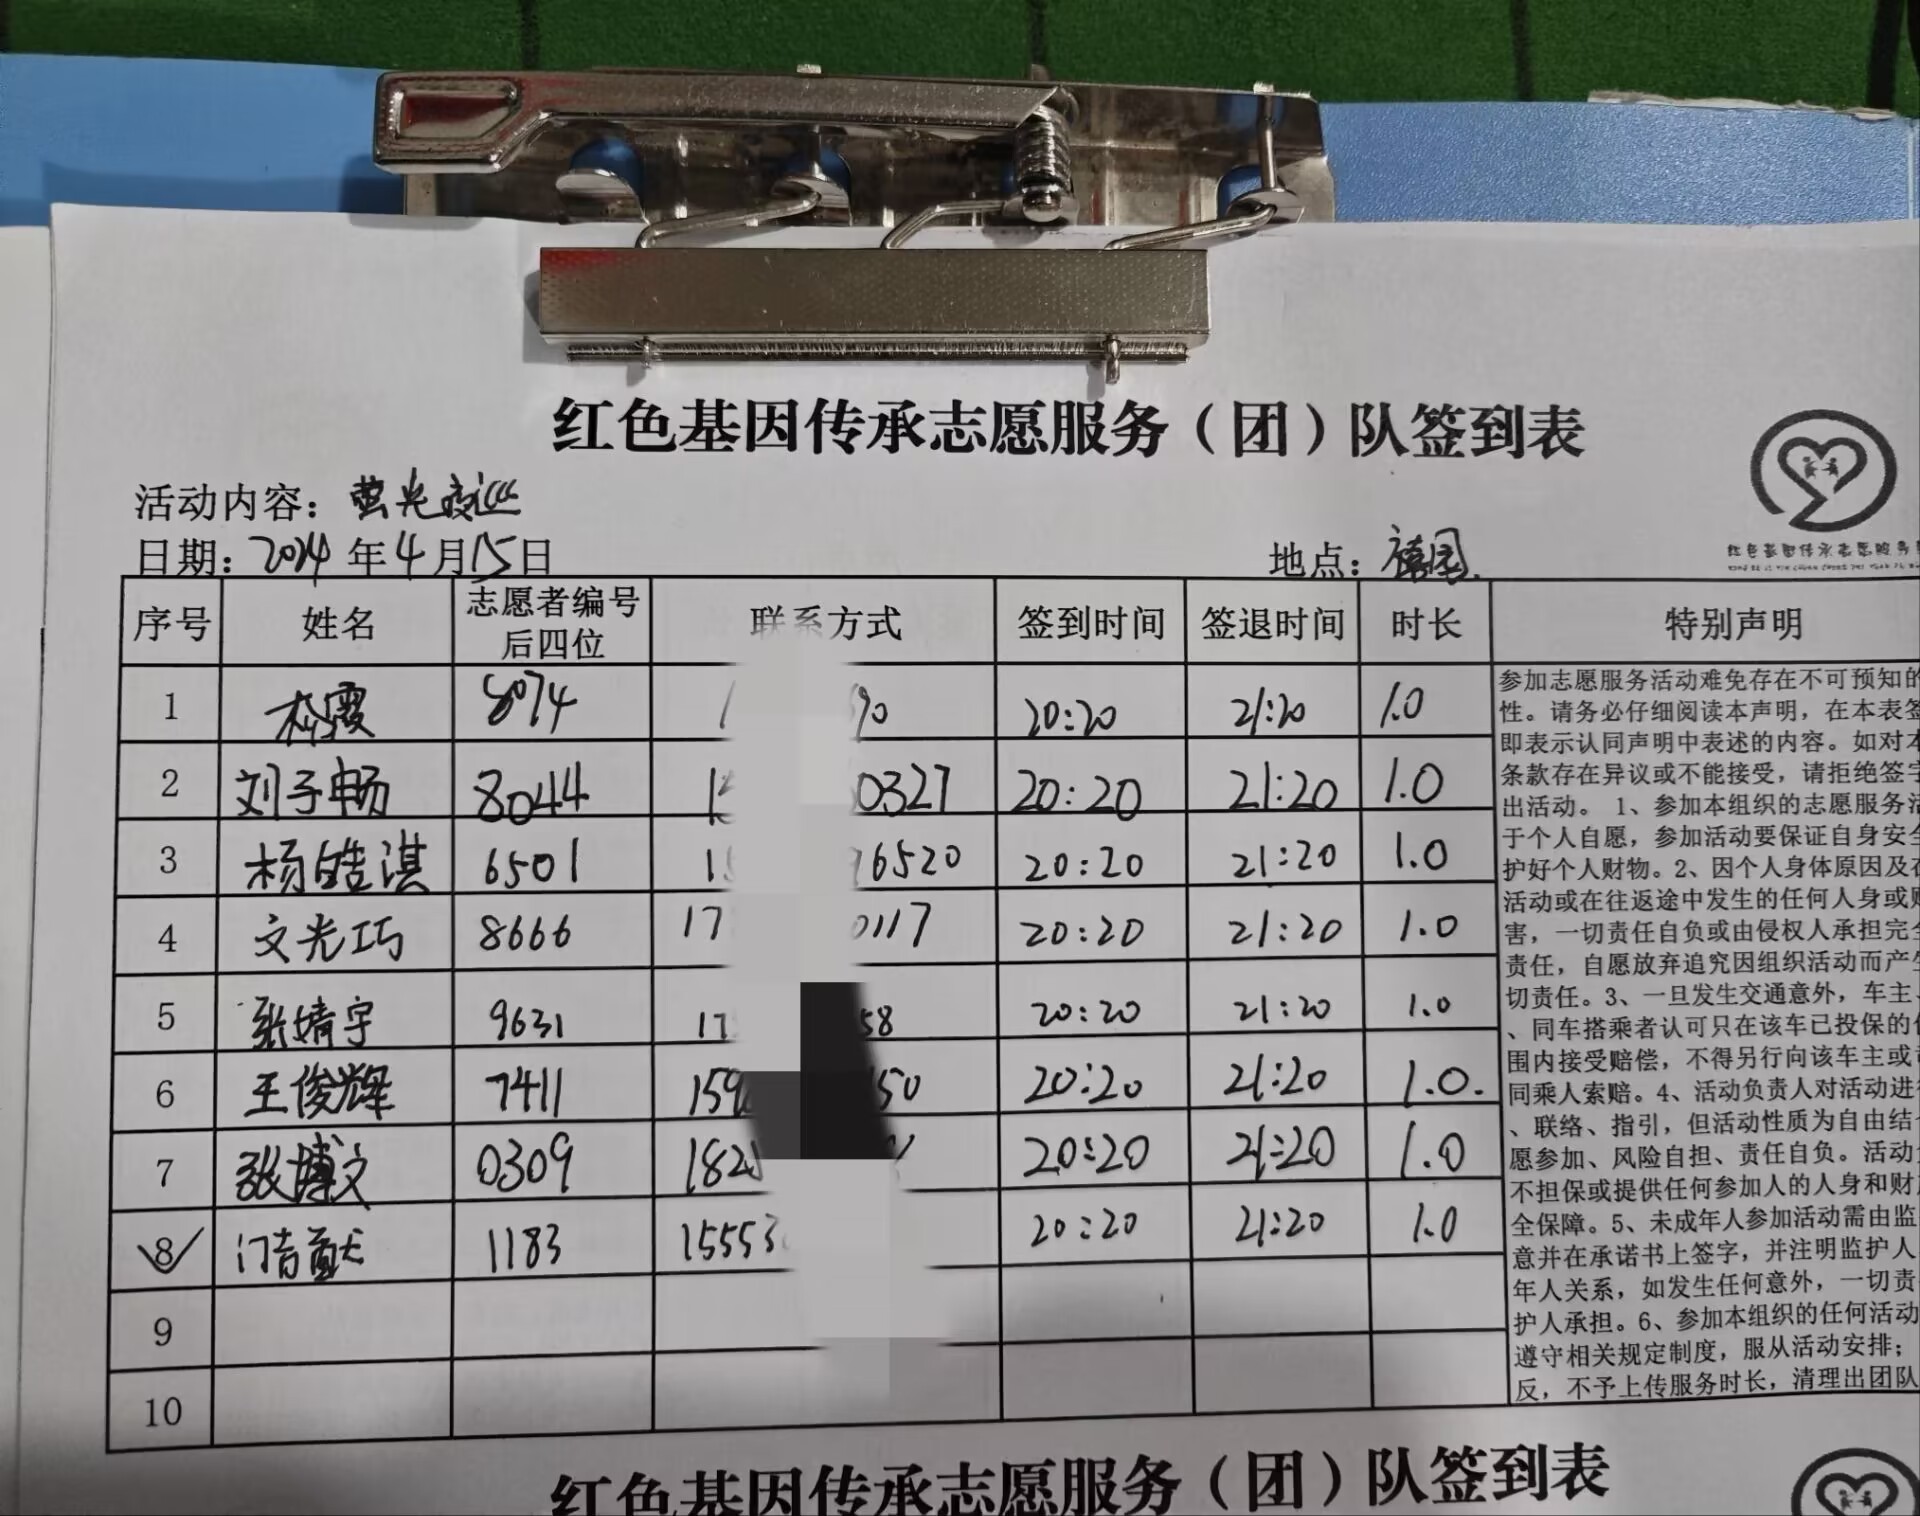 红色基因传承志愿服务（团）队签到表
活动内容：萤光夜巡
日期：2024年4月15日 地点：德国
红色基因传承志愿服务
序号 姓名 志愿者编号后四位 联系方式 签到时间 签退时间 时长 特别声明
1 8074 1 90 20:20 21:20 1.0
2 刘子畅 8044 15 0327 20:20 21:20 1.0
3 杨皓淇 6501 15 6520 20:20 21:20 1.0
4 文光巧 8666 17 0117 20:20 21:20 1.0
5 张婧宇 9631 17 58 20:20 21:20 1.0
6 王俊辉 7411 159 50 20:20 21:20 1.0.
7 张博文 0309 182 20:20 21:20 1.0
8 门吉猷 1183 15553 20:20 21:20 1.0
9
10
参加志愿服务活动难免存在不可预知的
性。请务必仔细阅读本声明，在本表签
即表示认同声明中表述的内容。如对本
条款存在异议或不能接受，请拒绝签字
出活动。1、参加本组织的志愿服务活
于个人自愿，参加活动要保证自身安全
护好个人财物。2、因个人身体原因及在
活动或在往返途中发生的任何人身或财
害，一切责任自负或由侵权人承担完全
责任，自愿放弃追究因组织活动而产生
切责任。3、一旦发生交通意外，车主、
、同车搭乘者认可只在该车已投保的
围内接受赔偿，不得另行向该车主或
同乘人索赔。4、活动负责人对活动进行
、联络、指引，但活动性质为自由结
愿参加、风险自担、责任自负。活动
不担保或提供任何参加人的人身和财
全保障。5、未成年人参加活动需由监
意并在承诺书上签字，并注明监护人
年人关系，如发生任何意外，一切责
护人承担。6、参加本组织的任何活动
遵守相关规定制度，服从活动安排；
反，不予上传服务时长，清理出团队
红色基因传承志愿服务（团）队签到表